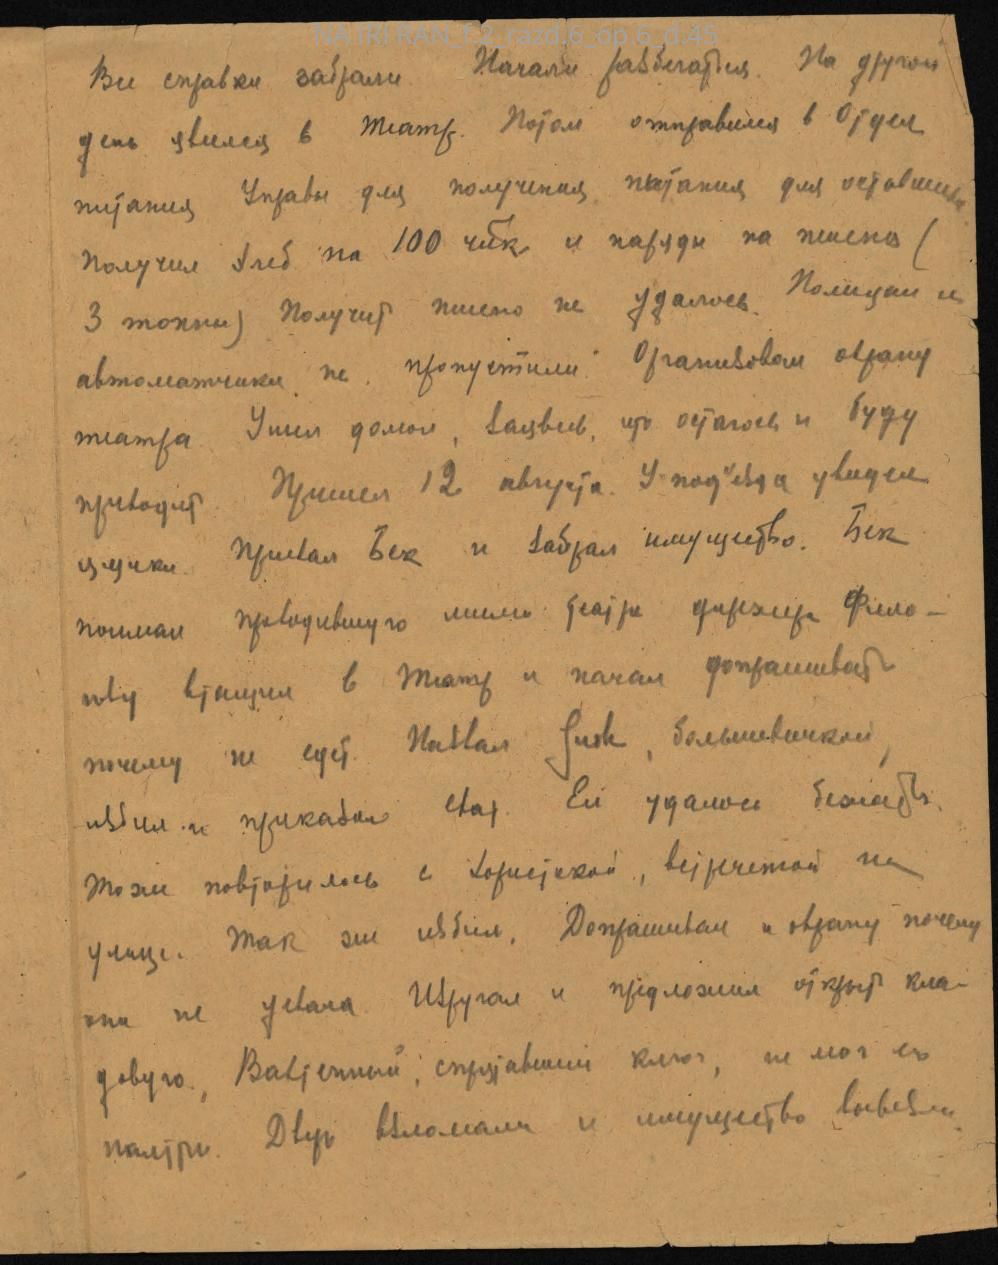 NA IRI RAN_F.2_razd.6_op.6_d.45
Все справки забрали Начали разбегаться. На другой
день явился в театр. Потом отправился в Отдел
питания Управы для получения питания для оставшихся
Получил хлеб на 100 чвк и наряды на пшено (
3 тонны) Получит пшено не удалось. Полицаи и
автоматчики не пропустили. Организовал охрану
театра Ушел домой, заявив, что остаюсь и буду
приходит Пришел 12 августа. У под'езда увидел
Приехал Бек и забрал имущество. Бек
поймал проходившую мимо театра дирижера Фило-
нову втащил в театр и начал допрашивать
почему не едет. Назвал Jude, большевичкой,
избил и приказал ехат. Ей удалось бежать.
Тоже повторилось с хористкой, встреченой на
улице. Так же избил. Допрашивал и охрану почему
она не уехала Изругал и предложил открыт кла-
довую., спрятавший ключ, не мог его
найти. Дверь взломали и имущество вывезли.